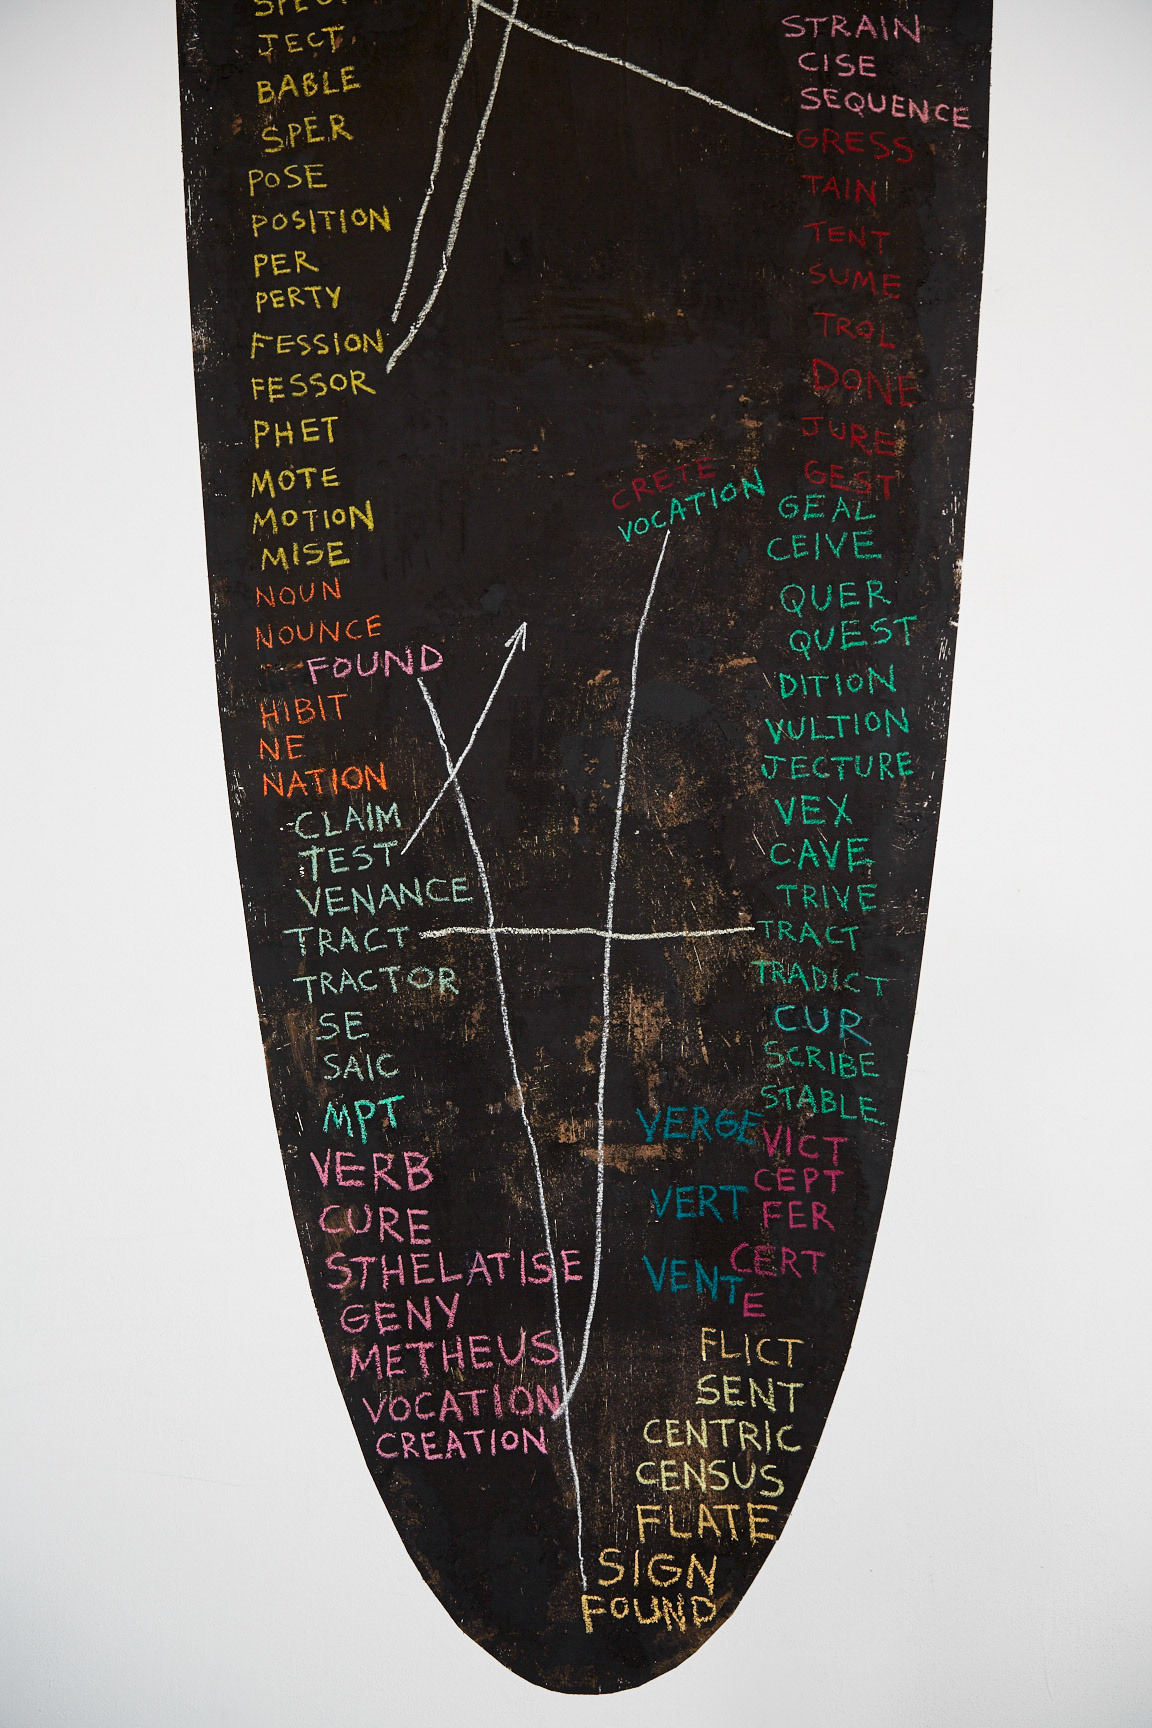 JECT
BABLE
SPER
POSE
POSITION
PER
PERTY
FESSION
FESSOR
PHET
MOTE
MOTION
MISE
NOUN
NOUNCE
FOUND
HIBIT
NE
NATION
CLAIM
TEST
VENANCE
TRACT
TRACTOR
SE
SAIC
MPT
VERB
CURE
STHELATISE
GENY
METHEUS
VOCATION
CREATION
CRETE
VOCATION
STRAIN
CISE
SEQUENCE
GRESS
TAIN
TENT
SUME
TROL
DONE
JURE
GEST
GEAL
CEIVE
QUER
QUEST
DITION
VULTION
JECTURE
VEX
CAVE
TRIVE
TRACT
TRADICT
CUR
SCRIBE
STABLE
VERGE
VICT
CEPT
VERT
FER
CERT
VENT
E
FLICT
SENT
CENTRIC
CENSUS
FLATE
SIGN
FOUND